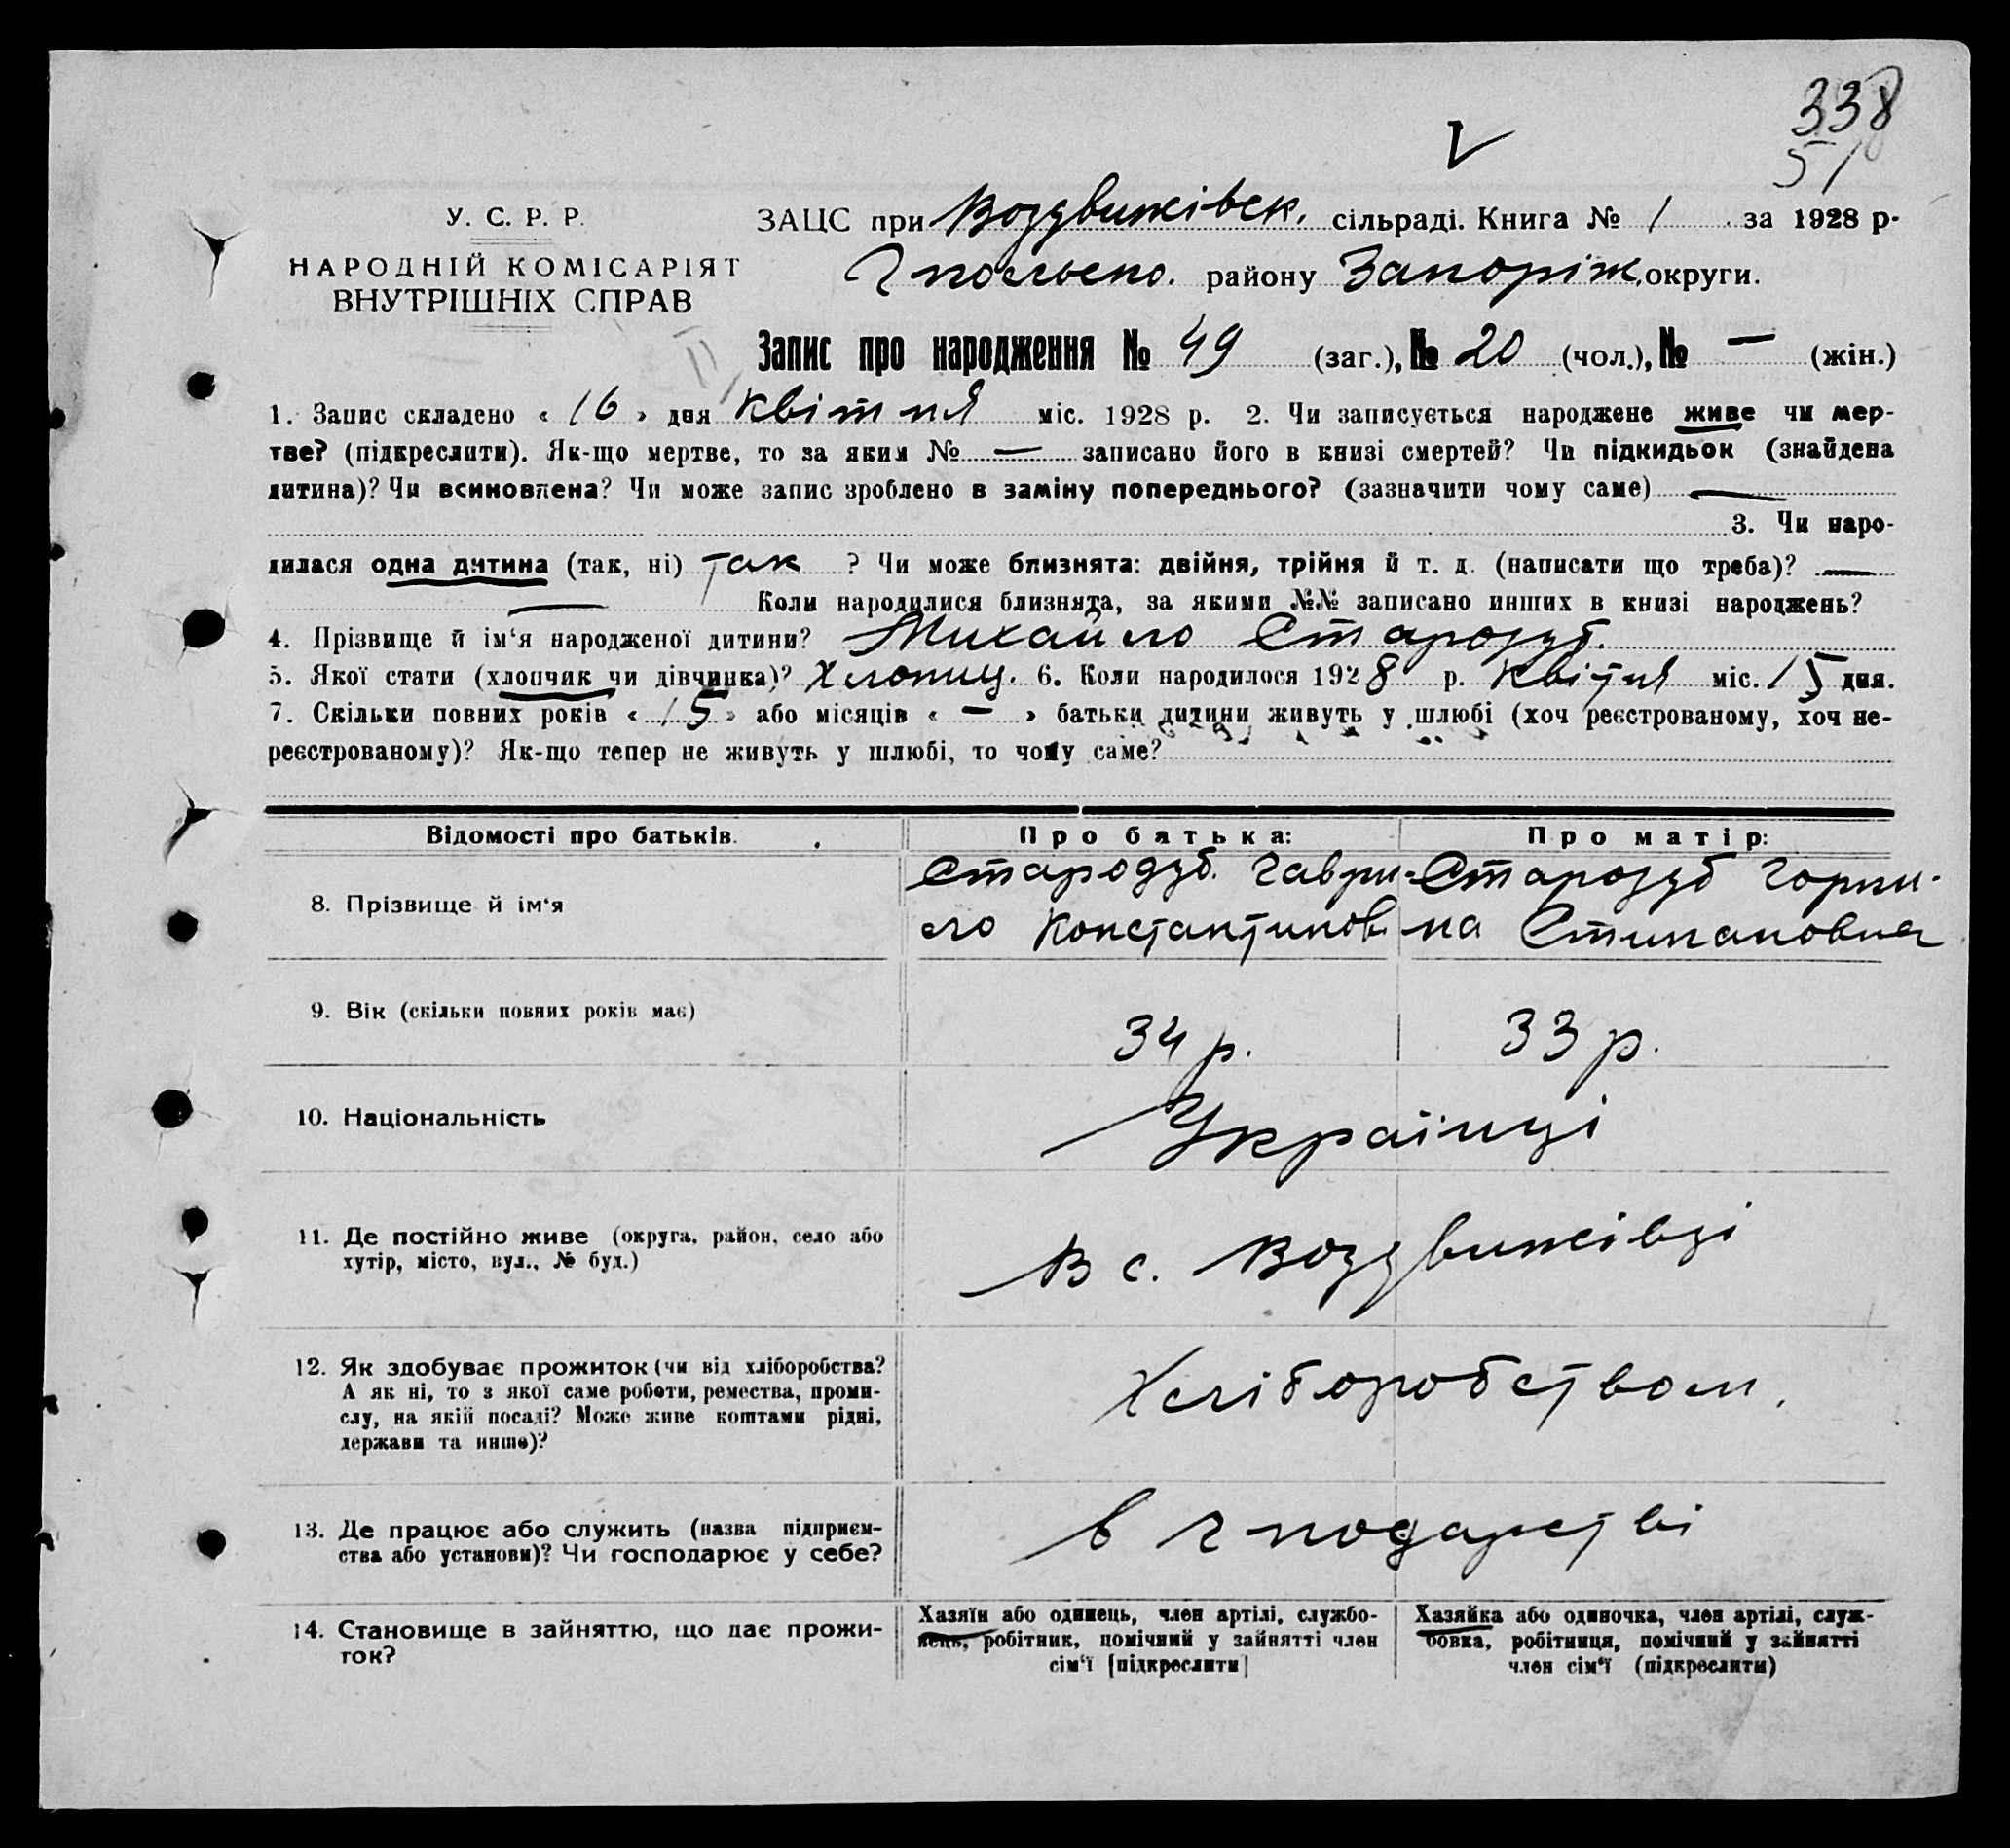 338
51
У. С. Р. Р.
НАРОДНІЙ КОМІСАРІЯТ
ВНУТРІШНІХ СПРАВ
ЗАЦС при Воздвижівськ. сільраді. Книга № 1 за 1928 р.
Гпольсько. району Запоріж. округи.
Запис про народження № 49 (заг.), № 20 (чол.), № — (жін.)
1. Запис складено « 16 » дня квітня міс. 1928 р. 2. Чи записується народжене живе чи мер-
тве? (підкреслити). Як-що мертве, то за яким № — записано його в книзі смертей? Чи підкидьок (знайдена
дитина)? Чи всиновлена? Чи може запис зроблено в заміну попереднього? (зазначити чому саме) —
3. Чи наро-
дилася одна дитина (так, ні) так ? Чи може близнята: двійня, трійня й т. д. (написати що треба)? —
— Коли народилися близнята, за якими №№ записано инших в книзі народжень?
4. Прізвище й ім‘я народженої дитини? Михайло Стародуб.
5. Якої стати (хлопчик чи дівчинка)? Хлопчиц. 6. Коли народилося 1928 р. Квітня міс. 15 дня.
7. Скільки повних років « 15 » або місяців « — » батьки дитини живуть у шлюбі (хоч реєстрованому, хоч не-
реєстрованому)? Як-що тепер не живуть у шлюбі, то чому саме?
Відомості про батьків. Про батька: Про матір:
8. Прізвище й ім‘я
Стародуб. Гаври- Стародуб Горпи-
ло Константинов на Стипановна
9. Вік (скільки повних років має)
34 р. 33 р.
10. Національність
Українці
11. Де постійно живе (округа, район, село або
хутір, місто, вул., № буд.)
В с. Воздвижівці
12. Як здобуває прожиток (чи від хліборобства?
А як ні, то з якої саме роботи, ремества, проми-
слу, на якій посаді? Може живе коштами рідні,
держави та инше)?
Хліборобством.
13. Де працює або служить (назва підприєм-
ства або установи)? Чи господарює у себе?
в гподарстві
14. Становище в зайняттю, що дає прожи-
ток?
Хазяїн або одинець, член артілі, службо-
вець, робітник, помічний у зайнятті член
сім‘ї [підкреслити]
Хазяйка або одиночка, член артілі, служ-
бовка, робітниця, помічний у зайнятті
член сім‘ї (підкреслити)